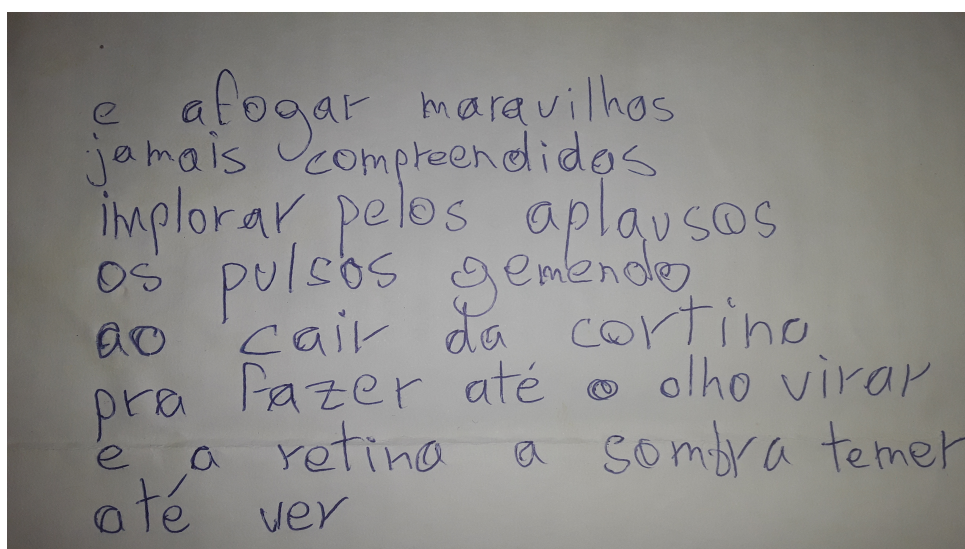 e afogar maravilhas
jamais compreendidas
implorar pelos aplausos
os pulsos gemendo
ao cair da cortina
pra fazer até o olho virar
e a retina a sombra temer
até ver